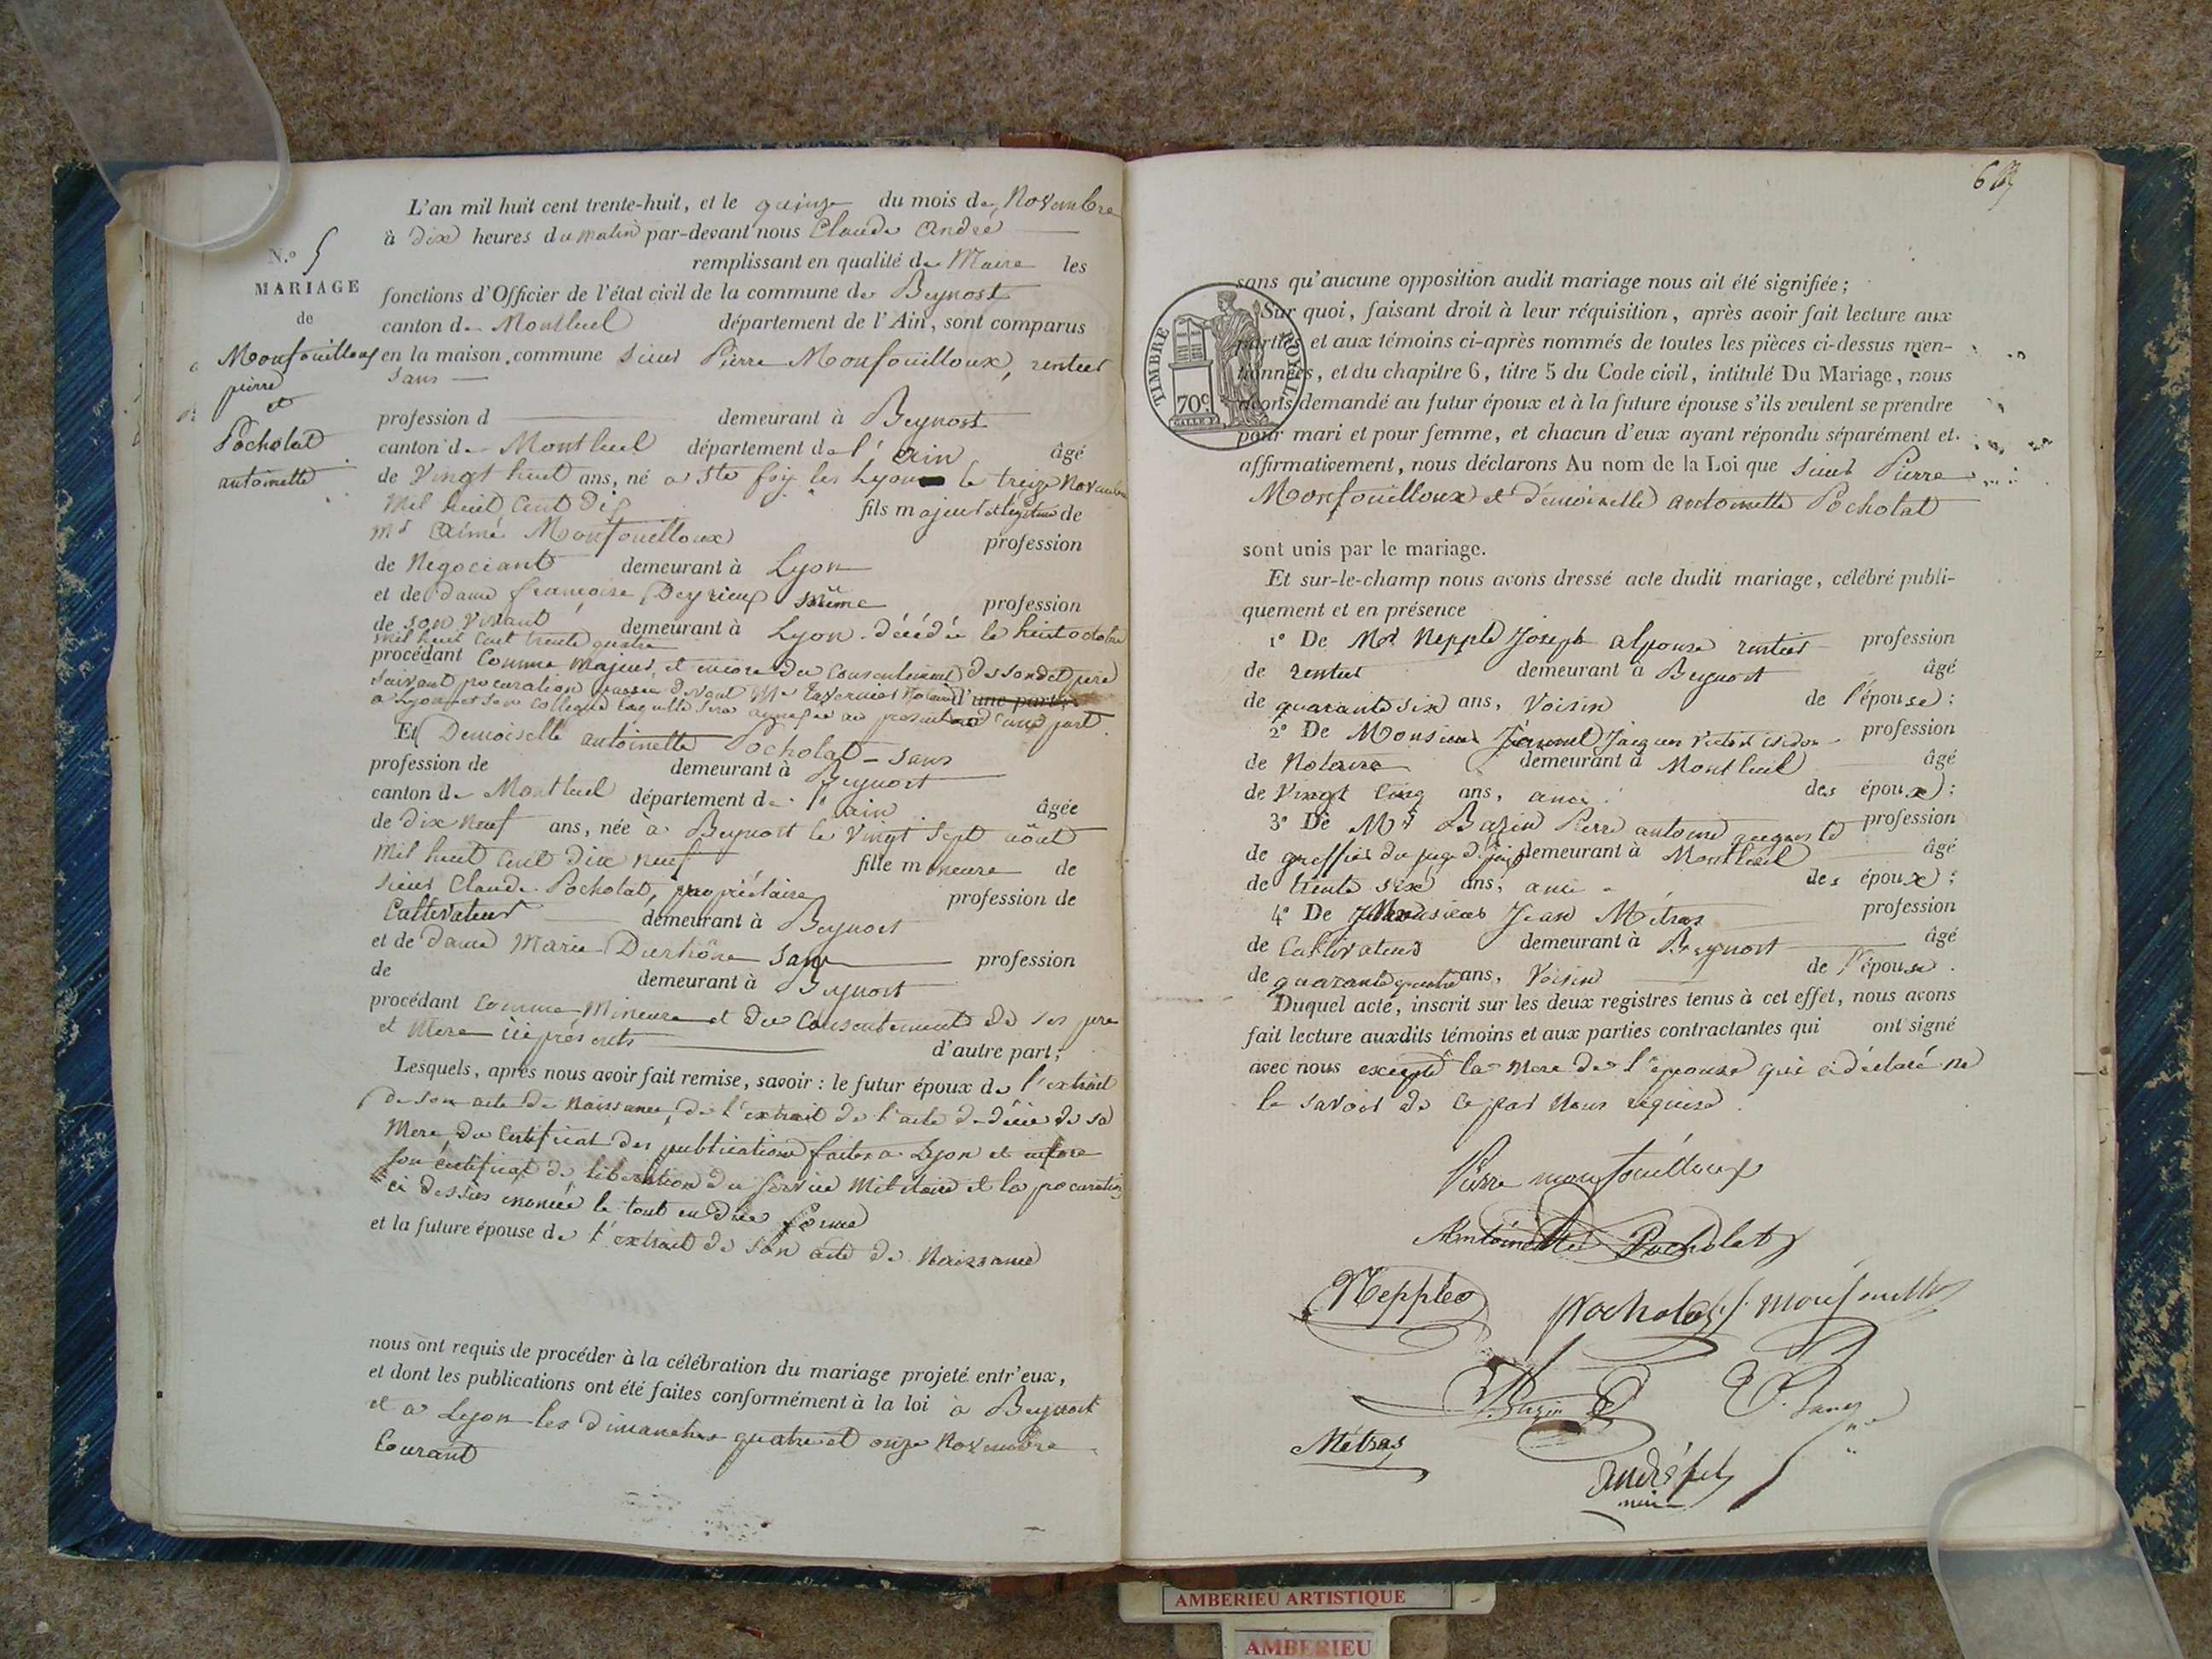 L'an mil huit cent trente-huit, et le quinze du mois de Novembre
à dix heures du matin par-devant nous Claude andré
remplissant en qualité de Maire les
fonctions d'Officier de l'état civil de la commune de Beynost
canton de Montluel département de l'Ain, sont comparus
en la maison commune sieur Pierre Monfouilloux, rentier
sans
profession d demeurant à Beynost
canton de Montluel département de l'ain âgé
de Vingt huit ans, né a Ste foy les Lyon le treize Novembre
Mil huit Cent dix fils majeur et légitime de
Mr Aimé Monfouilloux profession
de Negociant demeurant à Lyon
et de dame françoise Deyrieux profession
de son vivant demeurant à Lyon décédée le huit octobre
mil huit cent trente quatre
procédant Comme Majeur, et encore du Consentement de sondit père
suivant procuration passée devant Me Notaire d'une part
a Lyon et son Collegue laquelle sera annexée au present d'une part
Et Demoiselle antoinette Pocholat - sans
profession de demeurant à Beynost
canton de Montluel département de l'ain âgée
de dix neuf ans, née à Beynost le Vingt Sept août
Mil huit Cent dix neuf fille mineure de
sieur Claude Pocholat, propriétaire profession de
Cultivateur demeurant à Beynost
et de dame Marie sans profession
de demeurant à Beynost
procédant Comme Mineure et du Consentement de ses pere
et Mere ici présents d'autre part;
Lesquels, après nous avoir fait remise, savoir : le futur époux de l'extrait
de son acte de Naissance, de l'extrait de l'acte de décès de sa
Mere, du Certificat des publications faites a Lyon et
son certificat de libération du service Militaire et la procuration
ci dessus enoncée le tout en due forme
et la future épouse de l'extrait de son acte de Naissance
nous ont requis de procéder à la célébration du mariage projeté entr'eux,
et dont les publications ont été faites conformément à la loi à Beynost
et a Lyon les dimanches quatre et onze Novembre
Courant
N.º 5
MARIAGE
de
Monfouilloux
pierre
et
Pocholat
antoinette
6
TIMBRE ROYAL
70c
sans qu'aucune opposition audit mariage nous ait été signifiée;
Sur quoi, faisant droit à leur réquisition, après avoir fait lecture aux
parties et aux témoins ci-après nommés de toutes les pièces ci-dessus men-
tionnées, et du chapitre 6, titre 5 du Code civil, intitulé Du Mariage, nous
avons demandé au futur époux et à la future épouse s'ils veulent se prendre
pour mari et pour femme, et chacun d'eux ayant répondu séparément et
affirmativement, nous déclarons Au nom de la Loi que sieur Pierre
Monfouilloux et demoiselle antoinette Pocholat
sont unis par le mariage.
Et sur-le-champ nous avons dressé acte dudit mariage, célébré publi-
quement et en présence
1º De Mr Nepple Joseph alponse rentier profession
de rentier demeurant à Beynost âgé
de quarante six ans, Voisin de l'épouse;
2º De Monsieur Jacques Victor isidor profession
de Notaire demeurant à Montluel âgé
de Vingt Cinq ans, ami des époux;
3º De Mr Bazin Pierre antoine profession
de greffier du juge de paix demeurant à Montluel âgé
de trente six ans, ami des époux;
4º De Monsieur Jean Métras profession
de Cultivateur demeurant à Beynost âgé
de quarante quatre ans, Voisin de l'épouse.
Duquel acte, inscrit sur les deux registres tenus à cet effet, nous avons
fait lecture auxdits témoins et aux parties contractantes qui ont signé
avec nous excepté la mere de l'épouse qui a déclaré ne
le savoir de ce par Nous requise.
Pierre monfouilloux
Antoinette Pocholat
Nepple Pocholat
Bazin
Métras
André
maire
AMBERIEU ARTISTIQUE
AMBERIEU